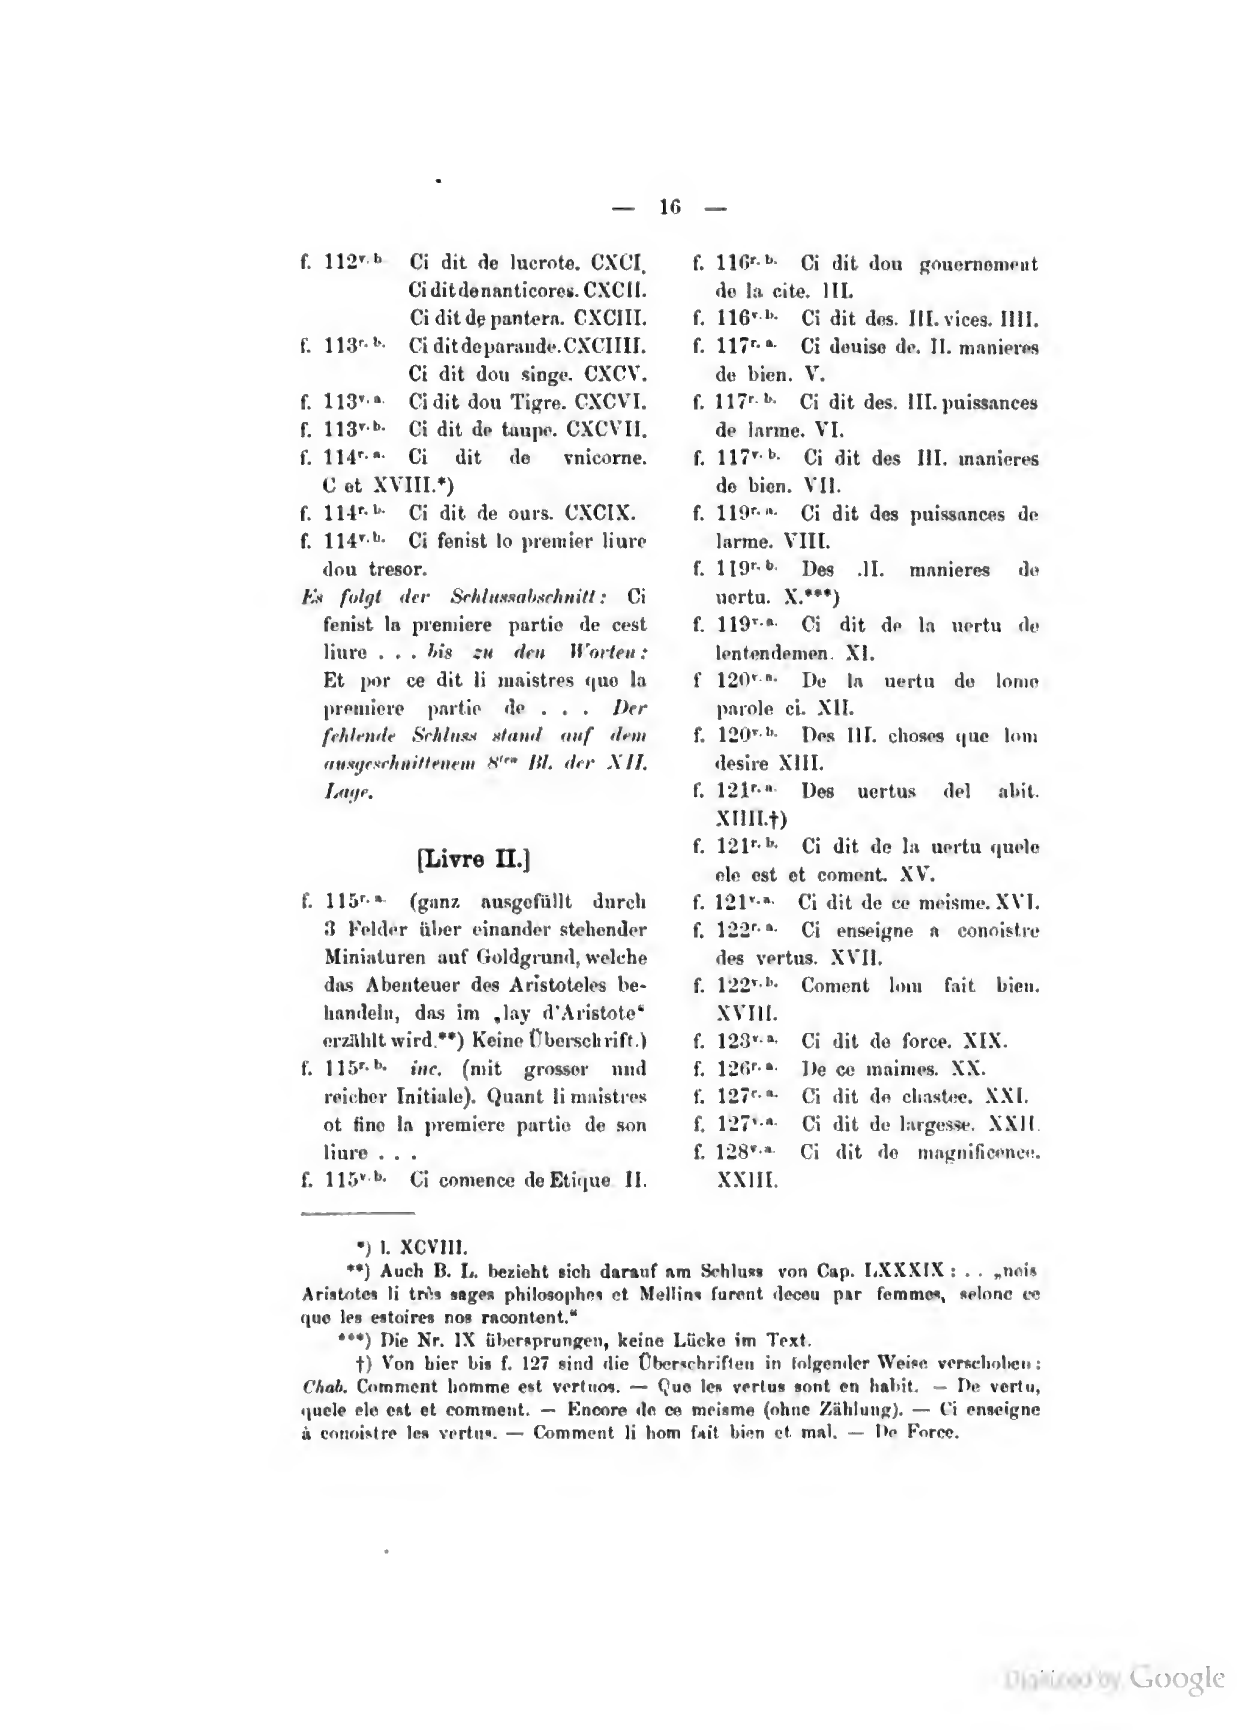 — 16 —
f. 112v. b Ci dit de lucrote. CXCI.
Ci dit de nanticores. CXCII.
Ci dit de pantera. CXCIII.
f. 113r. b. Ci dit de parande. CXCIIII.
Ci dit dou singe. CXCV.
f. 113v. a. Ci dit dou Tigre. CXCVI.
f. 113v. b. Ci dit de taupe. CXCVII.
f. 114r. a. Ci dit de vnicorne.
C et XVIII.*)
f. 114r. b. Ci dit de ours. CXCIX.
f. 114v. b. Ci fenist lo premier liure
dou tresor.
Es folgt der Schlussabschnitt: Ci
fenist la premiere partie de cest
liure . . . bis zu den Worten:
Et por ce dit li maistres que la
premiere partie de . . . Der
fehlende Schluss stand auf dem
ausgeschnittenem 8ten Bl. der XII.
Lage.
[Livre II.]
f. 115r. a. (ganz ausgefüllt durch
3 Felder über einander stehender
Miniaturen auf Goldgrund, welche
das Abenteuer des Aristoteles be-
handeln, das im „lay d'Aristote“
erzählt wird.**) Keine Überschrift.)
f. 115r. b. inc. (mit grosser und
reicher Initiale). Quant li maistres
ot fine la premiere partie de son
liure . . .
f. 115v. b. Ci comence de Etique II.
f. 116r. b. Ci dit dou gouernement
de la cite. III.
f. 116v. b. Ci dit des. III. vices. IIII.
f. 117r. a. Ci deuise de. II. manieres
de bien. V.
f. 117r. b. Ci dit des. III. puissances
de larme. VI.
f. 117v. b. Ci dit des III. manieres
de bien. VII.
f. 119r. a. Ci dit des puissances de
larme. VIII.
f. 119r. b. Des .II. manieres de
uertu. X.***)
f. 119v. a. Ci dit de la uertu de
lentendemen. XI.
f 120v. a. De la uertu de lome
parole ci. XII.
f. 120v. b. Des III. choses que lom
desire XIII.
f. 121r. a. Des uertus del abit.
XIIII.†)
f. 121r. b. Ci dit de la uertu quele
ele est et coment. XV.
f. 121v. a. Ci dit de ce meisme. XVI.
f. 122r. a. Ci enseigne a conoistre
des vertus. XVII.
f. 122v. b. Coment lom fait bien.
XVIII.
f. 123v. a. Ci dit de force. XIX.
f. 126r. a. De ce maimes. XX.
f. 127r. a. Ci dit de chastee. XXI.
f. 127v. a. Ci dit de largesse. XXII.
f. 128v. a. Ci dit de magnificence.
XXIII.
*) l. XCVIII.
**) Auch B. L. bezieht sich darauf am Schluss von Cap. LXXXIX : . . „neis
Aristotes li très sages philosophes et Mellins furent deceu par femmes, selonc ce
que les estoires nos racontent.“
***) Die Nr. IX übersprungen, keine Lücke im Text.
†) Von hier bis f. 127 sind die Überschriften in folgender Weise verschoben:
Chab. Comment homme est vertuos. — Que les vertus sont en habit. — De vertu,
quele ele est et comment. — Encore de ce meisme (ohne Zählung). — Ci enseigne
à conoistre les vertus. — Comment li hom fait bien et mal. — De Force.
Digitized by Google